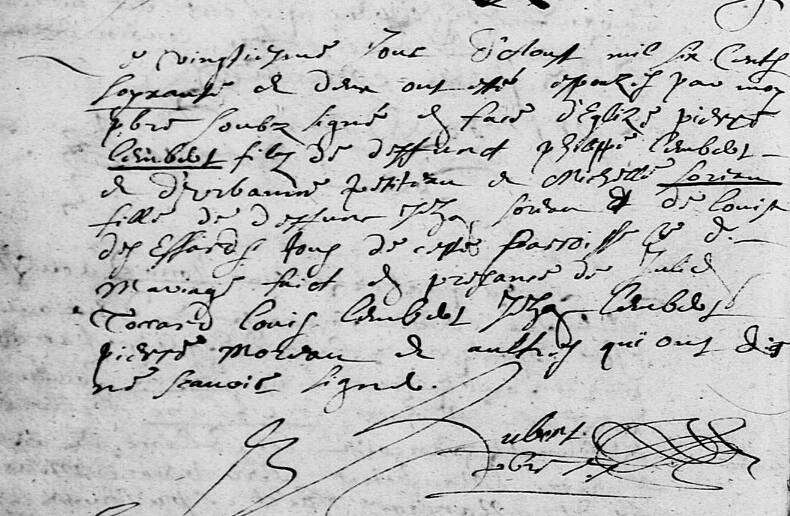 Le vingtiesme Jour d'Aoust mil six Cents
soixante et deux ont esté espouzés par moy
pbre soubz signé en face d'Eglize pierre
Lembelot filz de deffunct philippe Lembelot
et d'Urbanne petiteau et Michelle Loriau
fille de deffunct Loriau & de Louise
des Essards tous de cette parroisse le d.
Mariage faict en presance de Julien
Louis Lembelot Lembelot
pierre Moreau et aultres qui ont dit
ne scauoir signer.
Aubert
pbre